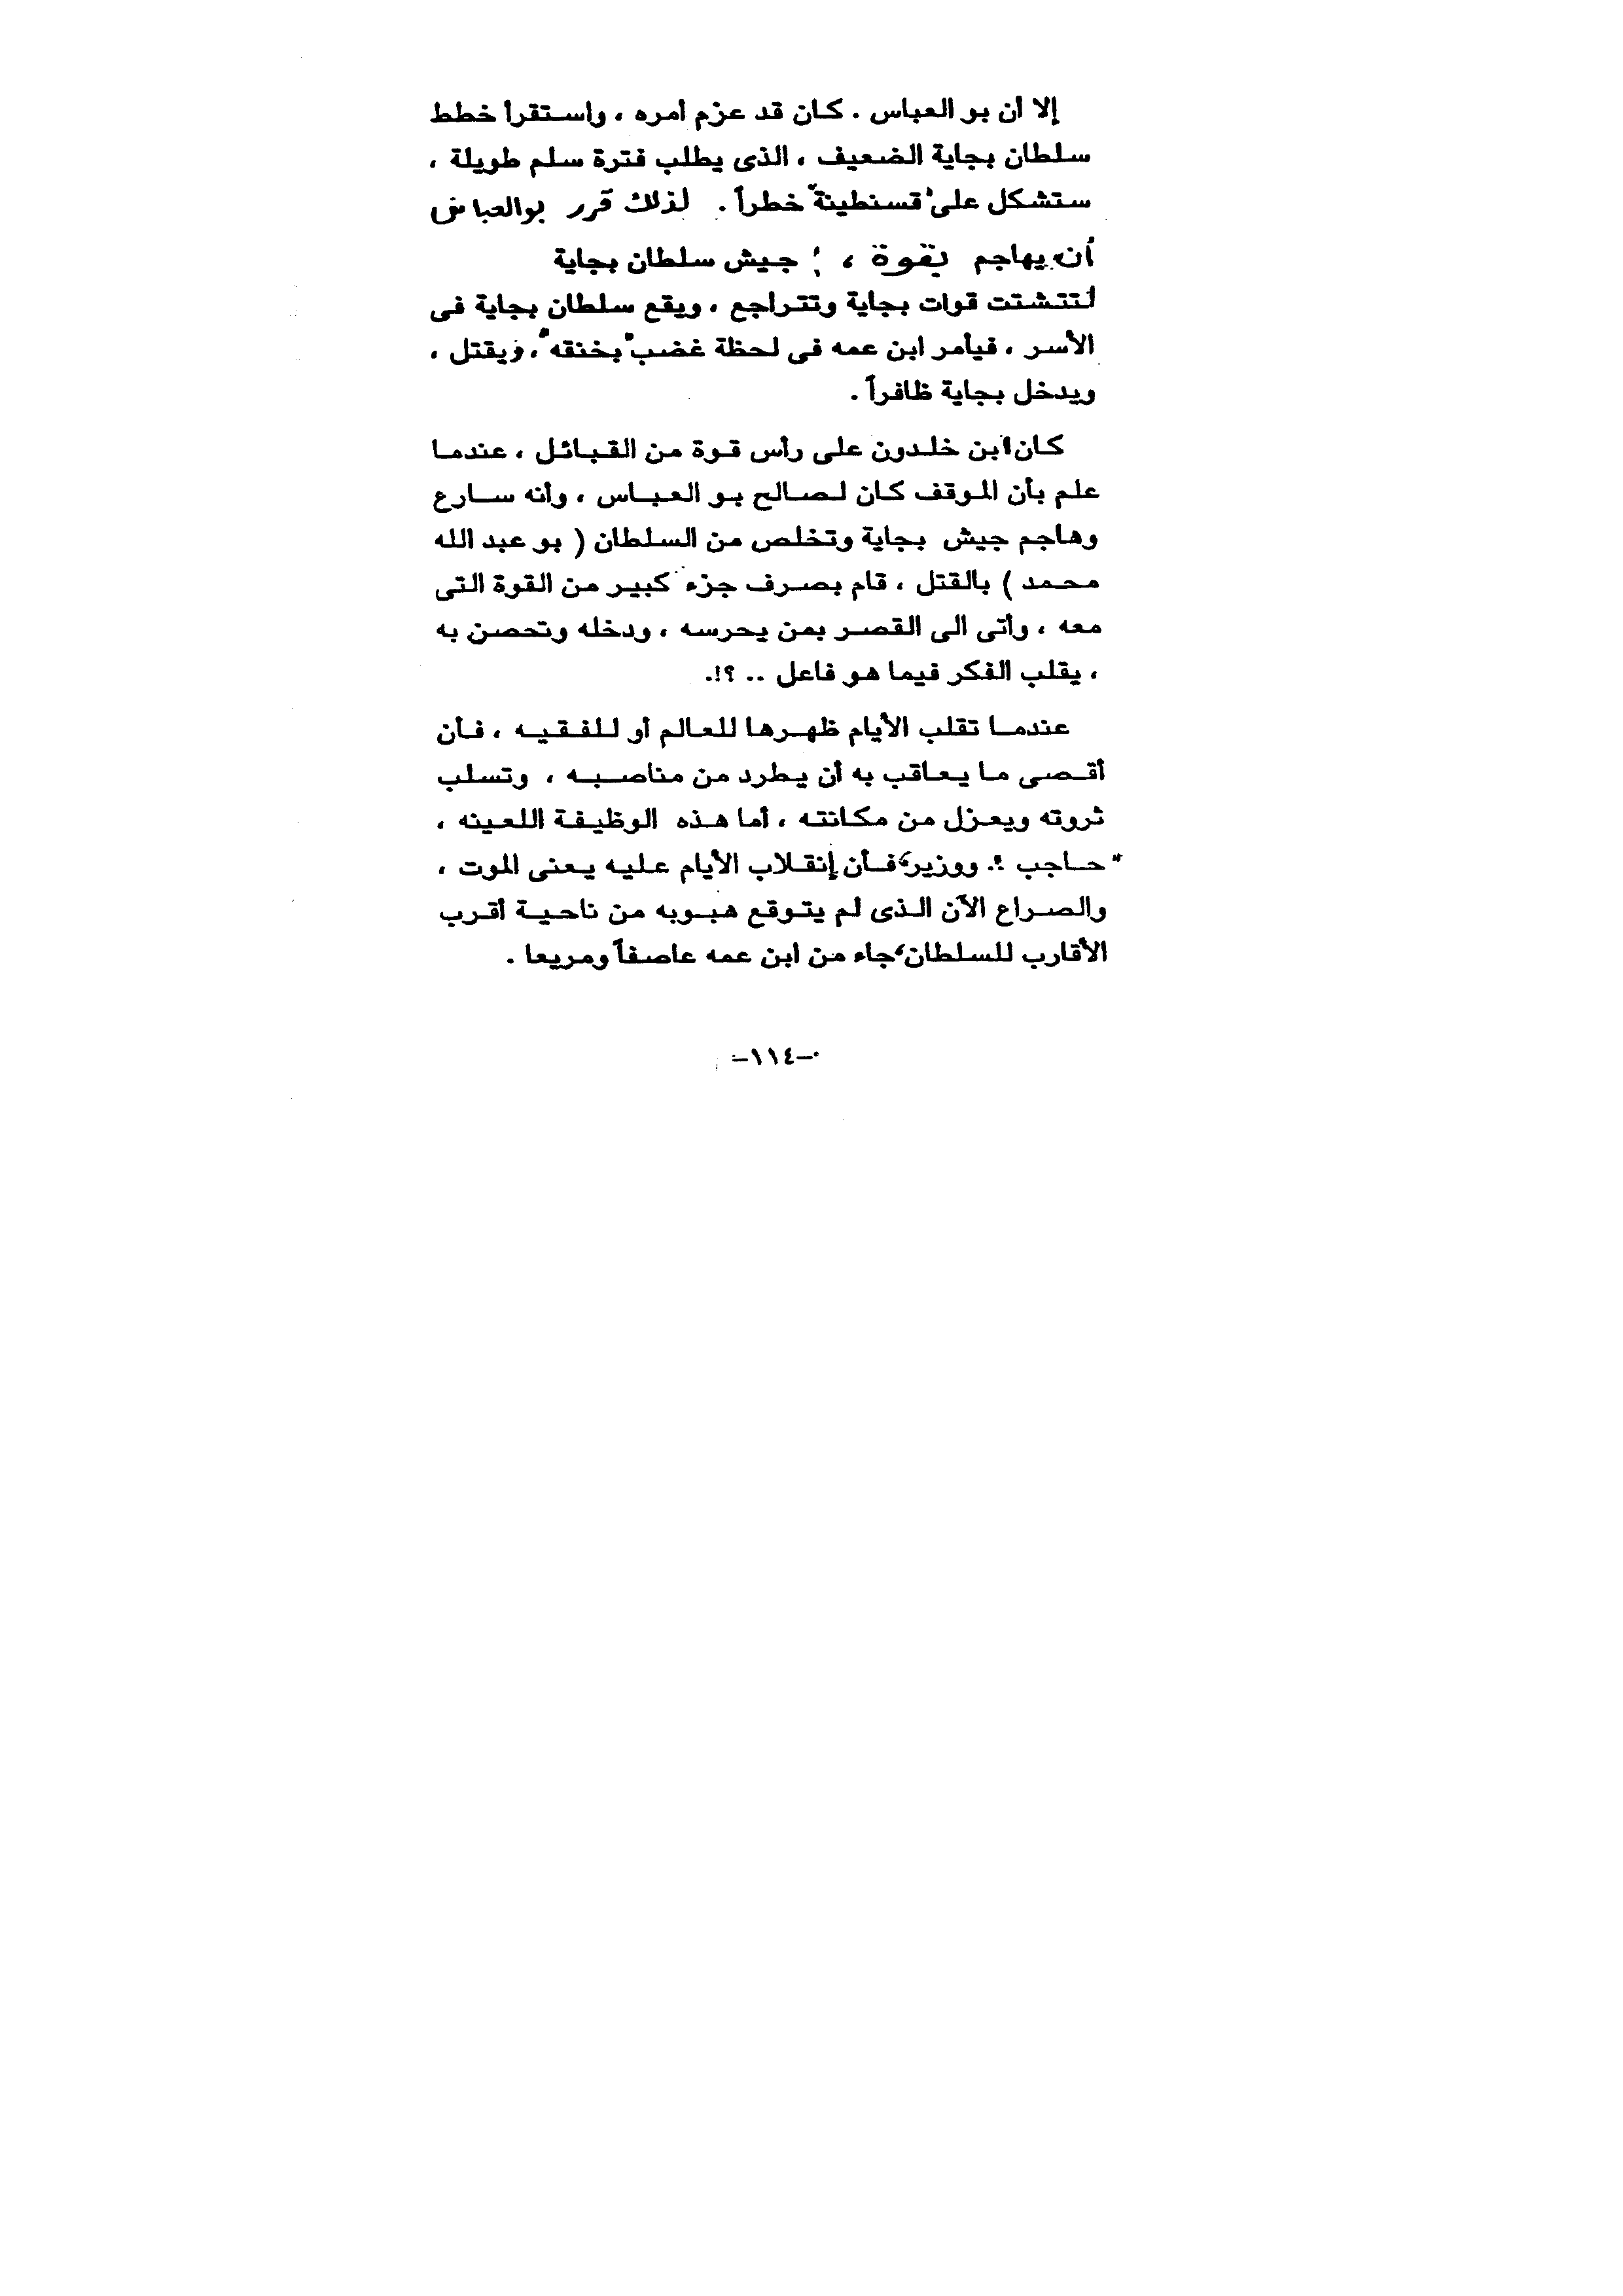 إلا أن بو العباس . كان قد عزم أمره ، واستقرأ خطط
سلطان بجاية الضعيف ، الذى يطلب فترة سلم طويلة ،
ستشكل على "قسنطينة" خطراً . لذلك قرر بوالعباس
أن يهاجم بقوة ، جيش سلطان بجاية
لتتشتت قوات بجاية وتتراجع ، ويقع سلطان بجاية فى
الأسر ، فيأمر ابن عمه فى لحظة غضب "بخنقه" ، ويقتل ،
ويدخل بجاية ظافراً .
كان ابن خلدون على رأس قوة من القبائل ، عندما
علم بأن الموقف كان لصالح بو العباس ، وأنه سارع
وهاجم جيش بجاية وتخلص من السلطان ( بو عبد الله
محمد ) بالقتل ، قام بصرف جزء كبير من القوة التى
معه ، وأتى الى القصر بمن يحرسه ، ودخله وتحصن به
، يقلب الفكر فيما هو فاعل .. ؟!.
عندما تقلب الأيام ظهرها للعالم أو للفقيه ، فأن
أقصى ما يعاقب به أن يطرد من مناصبه ، وتسلب
ثروته ويعزل من مكانته ، أما هذه الوظيفة اللعينه ،
"حاجب". ووزير، فأن إنقلاب الأيام عليه يعنى الموت ،
والصراع الآن الذى لم يتوقع هبوبه من ناحية أقرب
الأقارب للسلطان، جاء من ابن عمه عاصفاً ومريعا .
-١١٤-